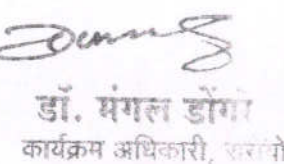 डॉ. मंगल डोंगरे
कार्यक्रम अधिकारी,